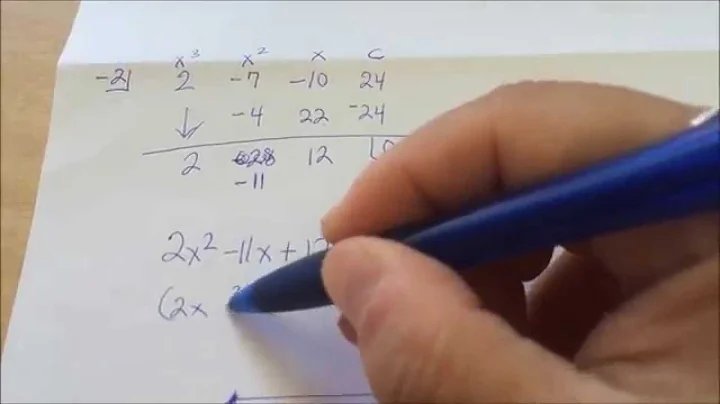 x³ x² x C
-2 2 -7 -10 24
-4 22 -24
2 12 0
-11
2x² -11x + 12
(2x